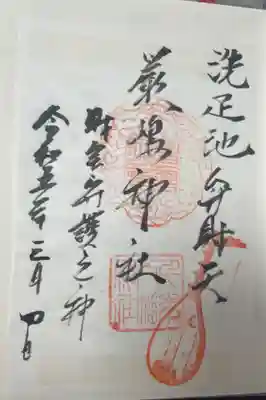 洗足池 弁財天
厳嶋神社
財宝弁護之神
令和五年二月四日